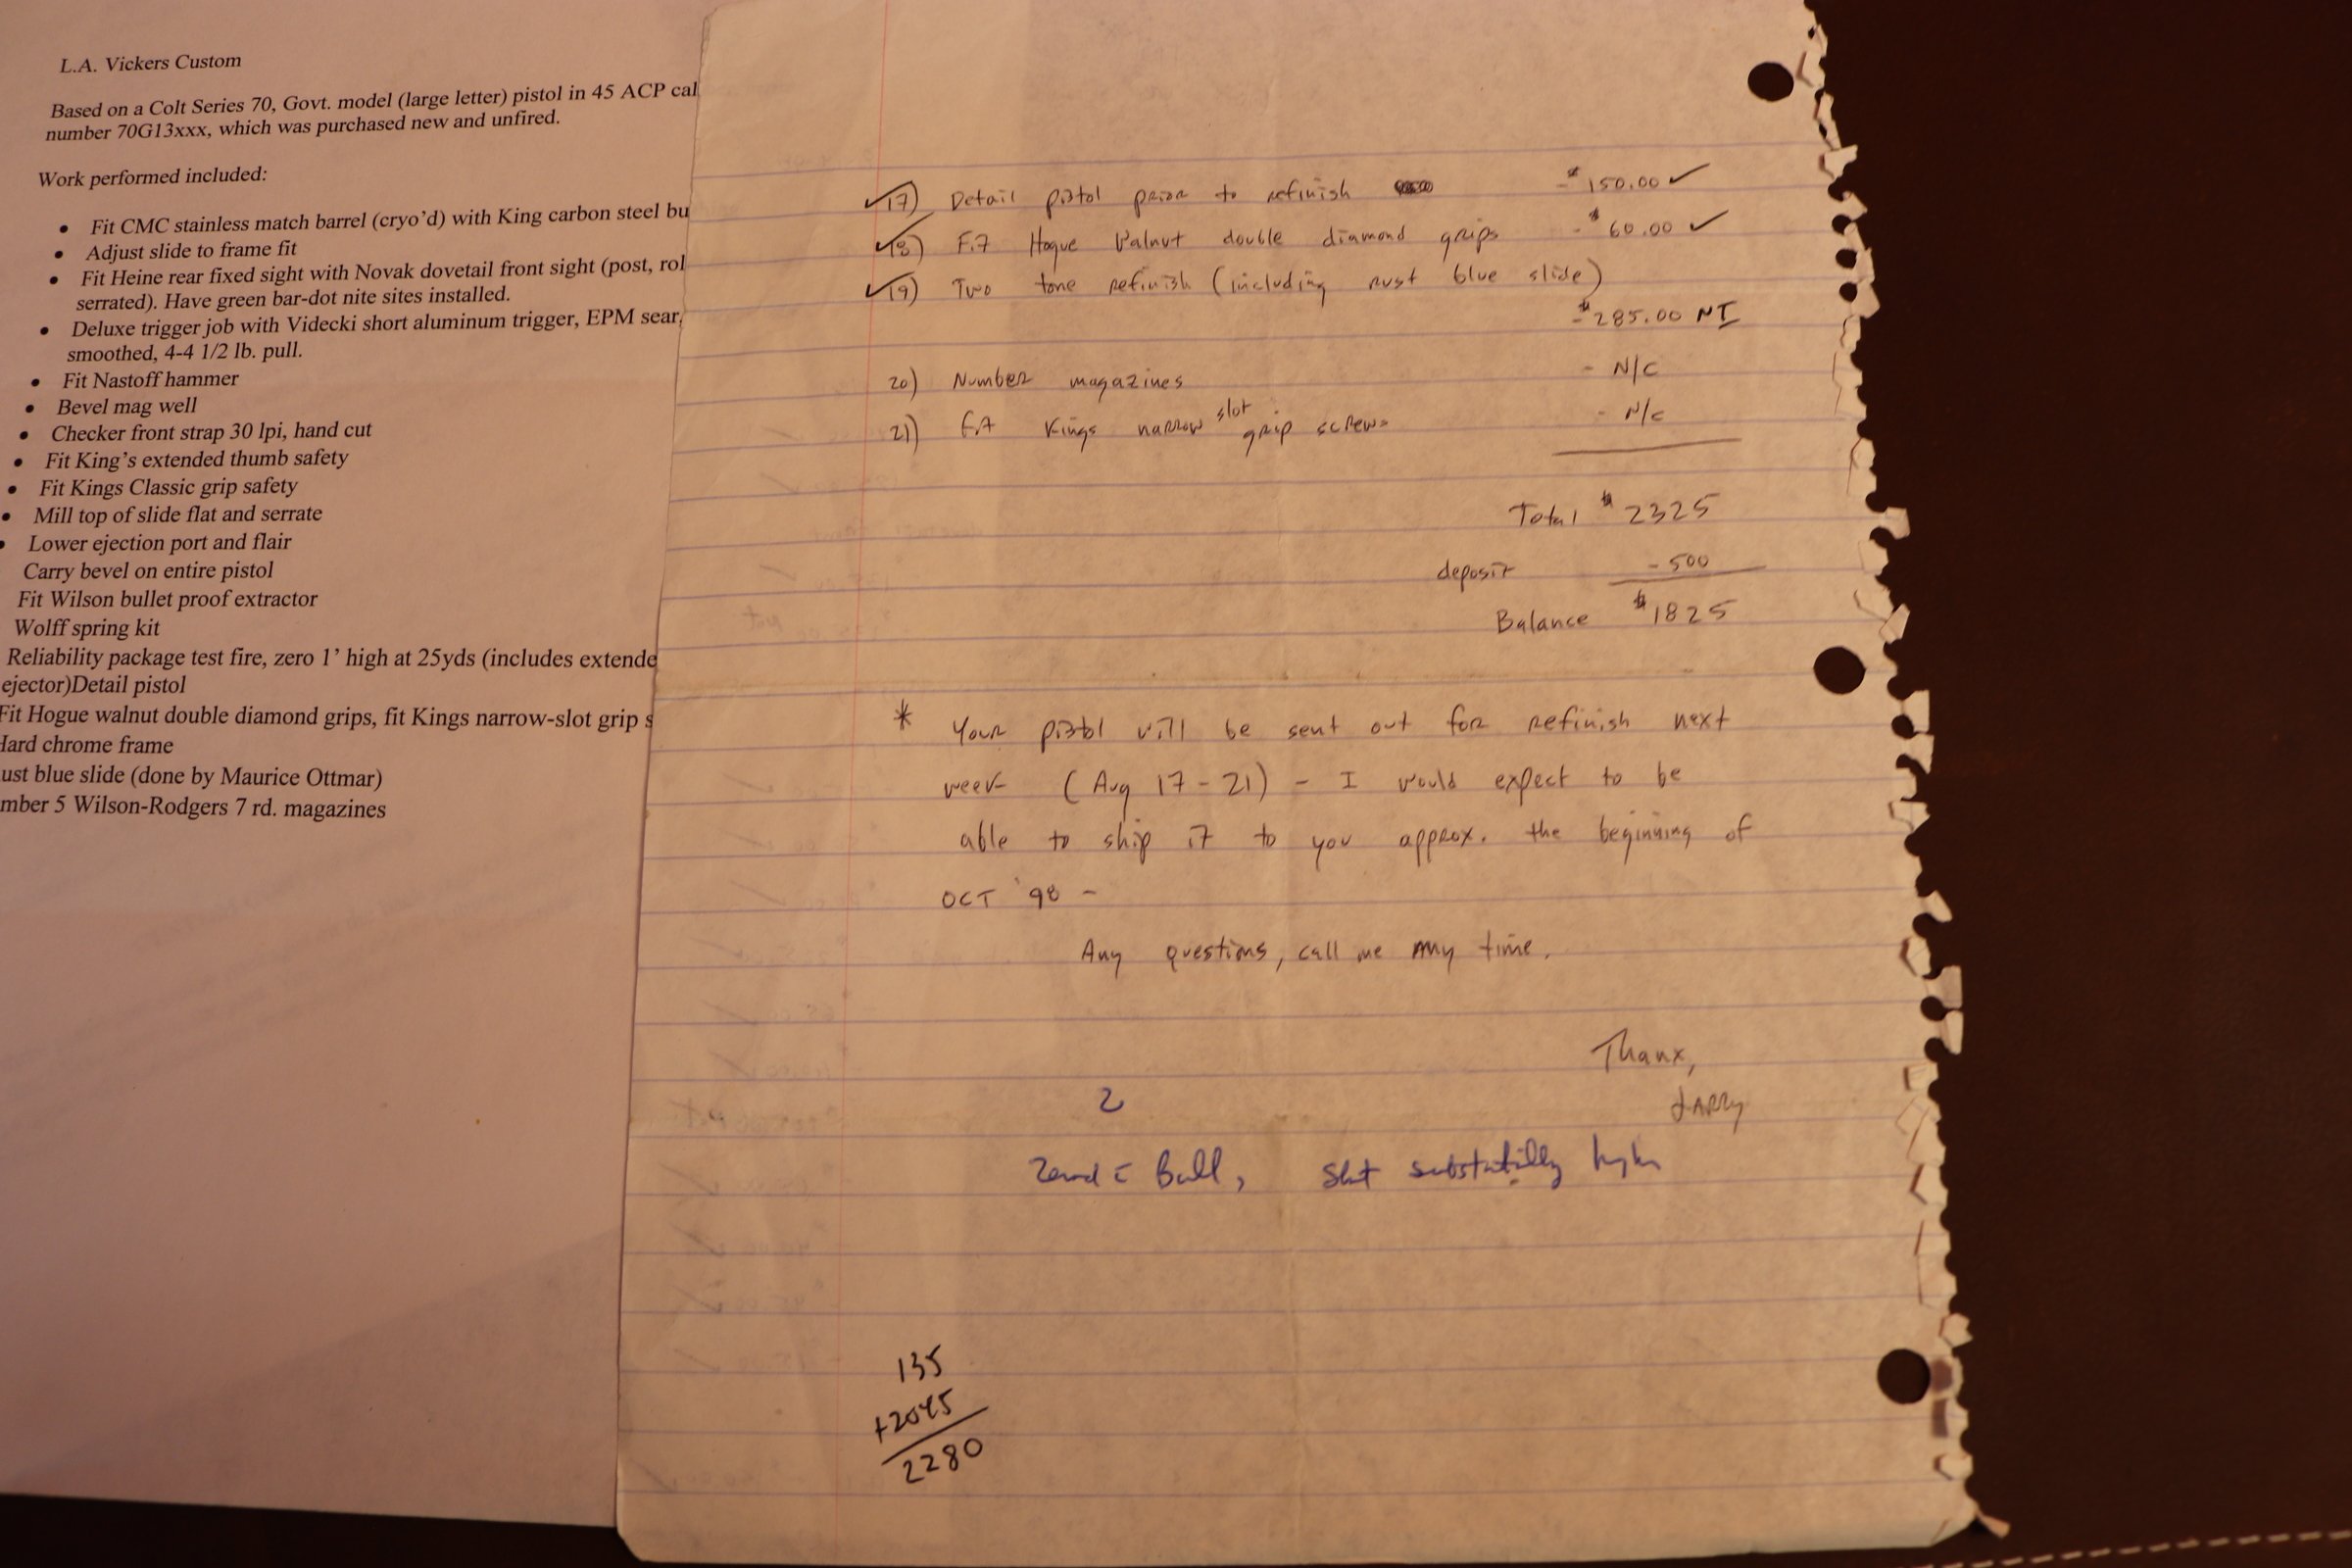 L.A. Vickers Custom
Based on a Colt Series 70, Govt. model (large letter) pistol in 45 ACP cal
number 70G13xxx, which was purchased new and unfired.
Work performed included:
• Fit CMC stainless match barrel (cryo'd) with King carbon steel bu
• Adjust slide to frame fit
• Fit Heine rear fixed sight with Novak dovetail front sight (post, rol
serrated). Have green bar-dot nite sites installed.
• Deluxe trigger job with Videcki short aluminum trigger, EPM sear,
smoothed, 4-4 1/2 lb. pull.
• Fit Nastoff hammer
• Bevel mag well
• Checker front strap 30 lpi, hand cut
• Fit King's extended thumb safety
• Fit Kings Classic grip safety
• Mill top of slide flat and serrate
• Lower ejection port and flair
Carry bevel on entire pistol
Fit Wilson bullet proof extractor
Wolff spring kit
Reliability package test fire, zero 1' high at 25yds (includes extende
ejector)Detail pistol
Fit Hogue walnut double diamond grips, fit Kings narrow-slot grip s
Hard chrome frame
ust blue slide (done by Maurice Ottmar)
mber 5 Wilson-Rodgers 7 rd. magazines
17) Detail pistol prior to refinish - $150.00 ✓
18) Fit Hogue Walnut double diamond grips - $60.00 ✓
19) Two tone refinish (including rust blue slide)
- $285.00 NI
20) Number magazines - N/C
21) Fit Kings narrow slot grip screws - N/C
Total $2325
deposit - 500
Balance $1825
* Your pistol will be sent out for refinish next
week (Aug 17-21) - I would expect to be
able to ship it to you approx. the beginning of
OCT '98 -
Any questions, call me any time.
Thanx,
LARRY
2
Ball, substatilly
135
+2045
2280